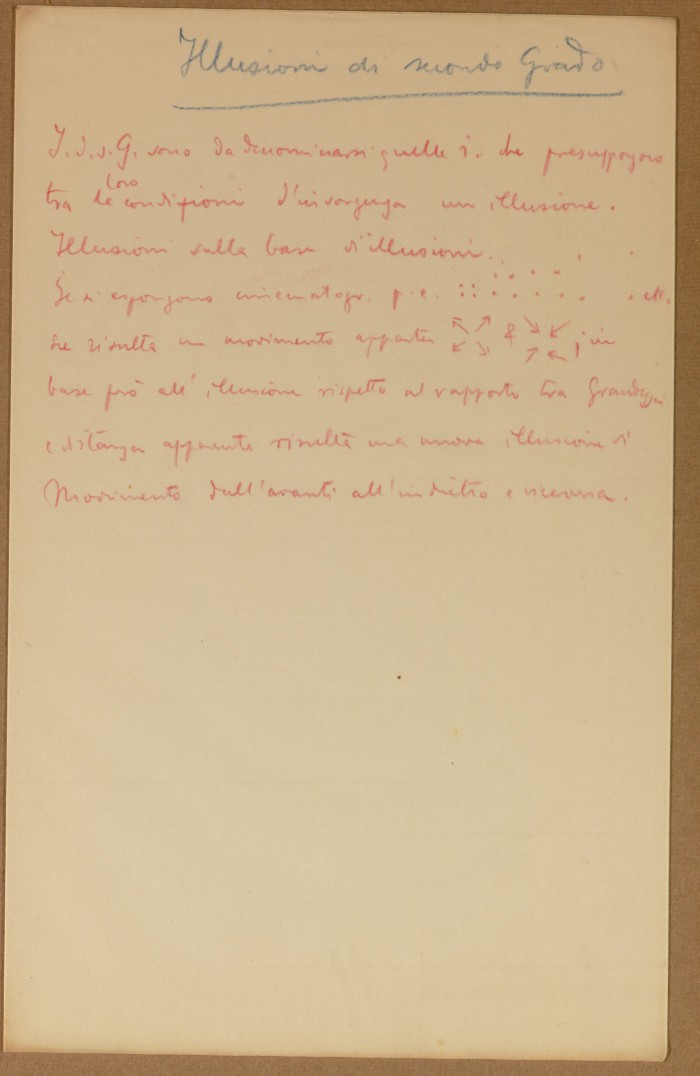 Illusioni di secondo Grado
I. d. s. G. sono da denominarsi quelle i. che presuppongono
tra le loro condizioni d'insorgenza un illusione.
Illusioni sulla base d'illusioni.
Se si espongono cinematogr. p. e. : : : : : : . . ecc.
ne risulta un movimento apparente ↖ ↗ ↙ ↘ & ↘ ↙ ↗ ↖ ; in
base però all'illusione rispetto al rapporto tra Grandezza
e distanza apparente risulta una nuova illusione di
Movimento dall'avanti all'indietro e viceversa.